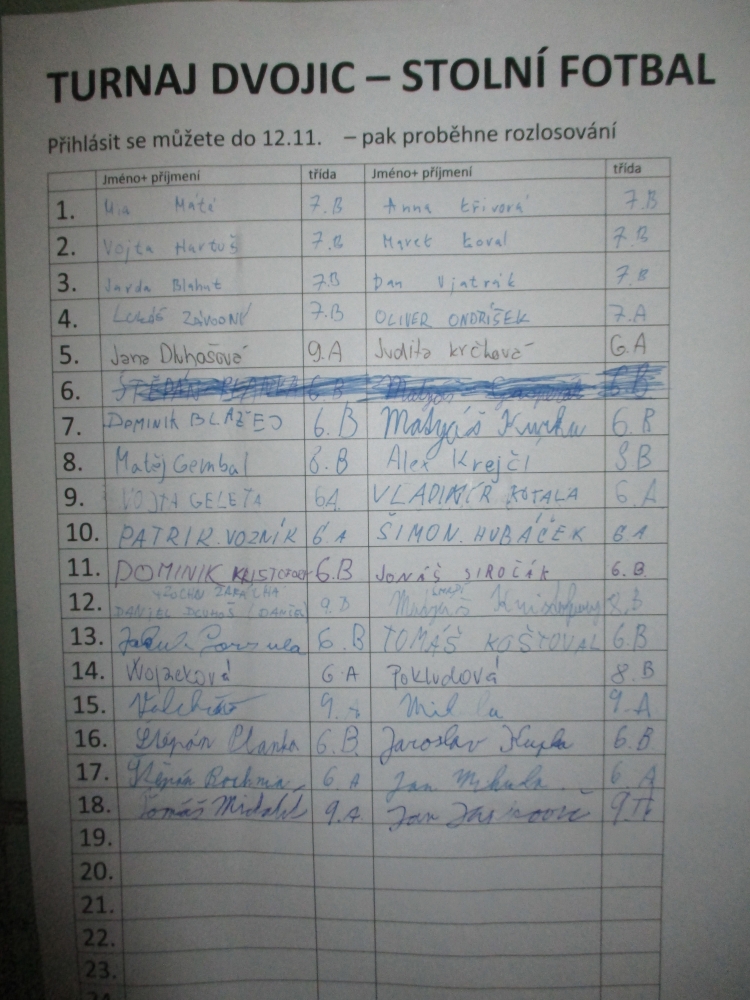 TURNAJ DVOJIC – STOLNÍ FOTBAL
Přihlásit se můžete do 12.11. – pak proběhne rozlosování
Jméno+ příjmení třída Jméno+ příjmení třída
1. Mia Máté 7.B Anna Křivová 7.B
2. Vojta Hartuš 7.B Marek Koval 7.B
3. Jarda Blahut 7.B Dan 7.B
4. Lukáš ZÁVODNÝ 7.B OLIVER ONDŘÍŠEK 7.A
5. Jana Dluhošová 9.A Judita krčková 6.A
6. ŠTĚPÁN 6.B Matyáš 6.B
7. DOMINIK BLAŽEJ 6.B Matyáš 6.B
8. Matěj Gembal 8.B Alex Krejčí 8.B
9. VOJTA GELETA 6A VLADIMÍR KOTALA 6.A
10. PATRIK.VOZNÍK 6.A ŠIMON.HUBÁČEK 6.A
11. DOMINIK 6.B JONÁŠ SIROČÁK 6.B
12. DANIEL 9.B Matyáš
13. Jakub 6.B TOMÁŠ KOŠTOVAL 6.B
14. Wojzeková 6.A Pokludová 8.B
15. 9.A 9.A
16. Štěpán Blanka 6.B. Jaroslav Kupka 6.B
17. Štěpán 6.A Jan Mikula 6.A
18. Tomáš 9.A Jan
19.
20.
21.
22.
23.
24.